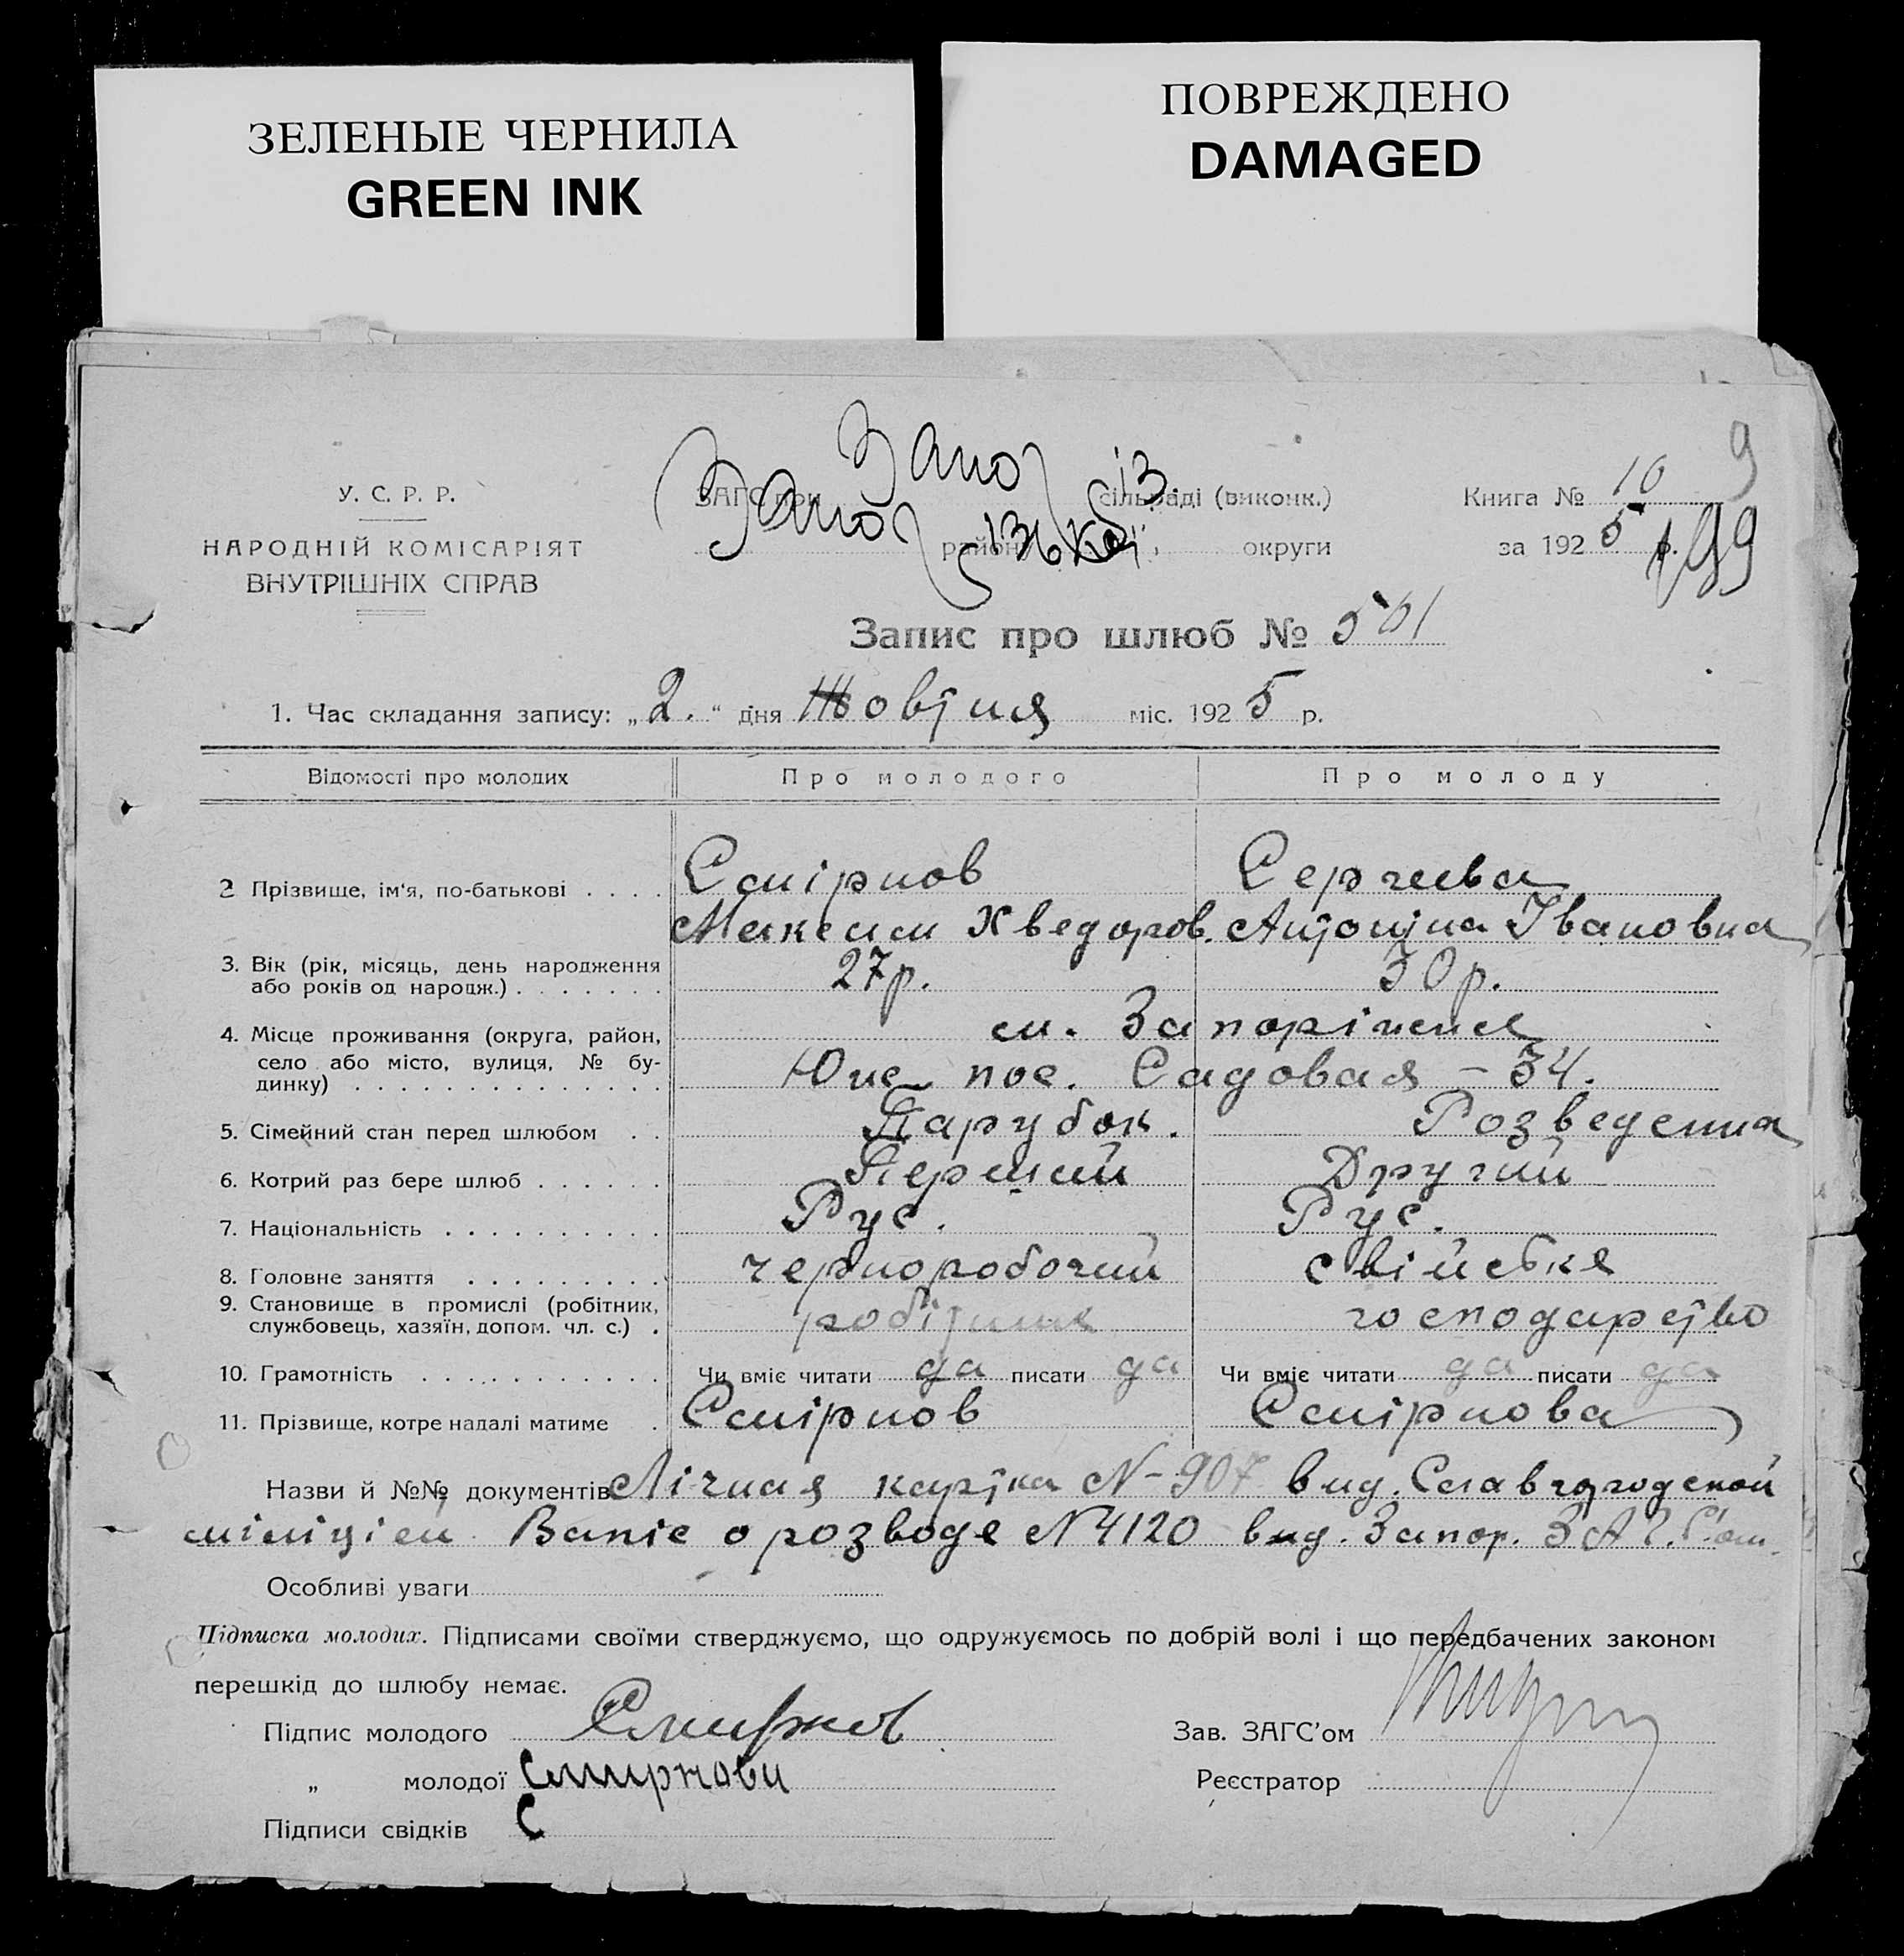 ЗЕЛЕНЫЕ ЧЕРНИЛА
GREEN INK
ПОВРЕЖДЕНО
DAMAGED
9
У. С. Р. Р.
НАРОДНІЙ КОМІСАРІЯТ
ВНУТРІШНІХ СПРАВ
ЗАГС при Запоріз. сільраді (виконк.)
Запорізької району, округи
Книга № 10
за 1925 р.
199
Запис про шлюб № 501
1. Час складання запису: „2.“ дня Жовтня міс. 1925 р.
Відомості про молодих Про молодого Про молоду
2 Прізвище, ім‘я, по-батькові . . . . Смірнов Сергиева
Максим Хведоров. Антоніна Івановна
3. Вік (рік, місяць, день народження
або років од народж.) . . . . . . . 27р. 30р.
4. Місце проживання (округа, район, м. Запоріжжя
село або місто, вулиця, № бу-
динку) . . . . . . . . . . . . . . Юже пос. Садовая – 34.
5. Сімейний стан перед шлюбом . . Парубок. Розведенна
6. Котрий раз бере шлюб . . . . . . Перший Другий
7. Національність . . . . . . . . . . Рус. Рус.
8. Головне заняття . . . . . . . . . черноробочий свійське
9. Становище в промислі (робітник,
службовець, хазяїн, допом. чл. с.) . робітник господарство
10. Грамотність . . . . . . . . . . . Чи вміє читати да писати да Чи вміє читати да писати да
11. Прізвище, котре надалі матиме . Смірнов Смірнова
Назви й №№ документів Лічная картка №-907 вид. Славгородской
міліціей Вапіс о розводе №4120 вид. Запор. ЗАГС'ом.
Особливі уваги
Підписка молодих. Підписами своїми стверджуємо, що одружуємось по добрій волі і що передбачених законом
перешкід до шлюбу немає.
Підпис молодого Смирнов Зав. ЗАГС’ом
„ молодої Смирнова Реєстратор
Підписи свідків С